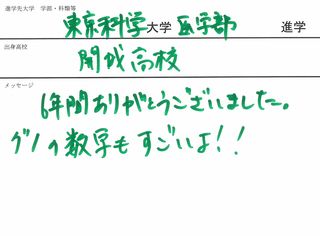 進学先大学 学部・科類等
東京科学大学 医学部 進学
出身高校
開成高校
メッセージ
6年間ありがとうございました。
グノの数学もすごいよ!!